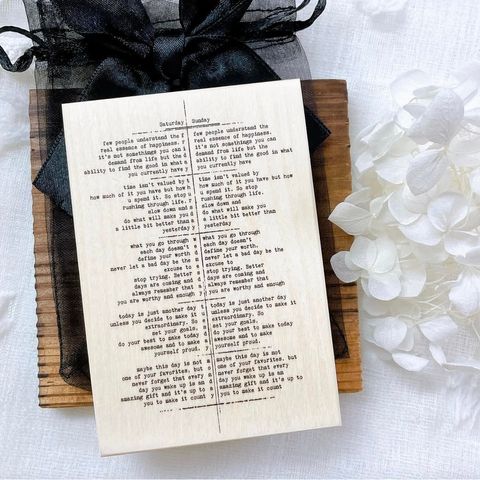 Saturday
few people understand the
real essence of happiness.
it's not somethings you can
demand from life but the
ability to find the good in what
you currently have
time isn't valued by
how much of it you have but how
u spend it. So stop
rushing through life.
slow down and
do what will make you
a little bit better than
yesterday
what you go through
each day doesn't
define your worth.
never let a bad day be the
excuse to
stop trying. Better
days are coming and
always remember that
you are worthy and enough
today is just another day
unless you decide to make it
extraordinary. So
set your goals.
do your best to make today
awesome and to make
yourself proud.
maybe this day is not
one of your favorites, but
never forget that every
day you wake up is an
amazing gift and it's up to
you to make it count
Sunday
few people understand the
real essence of happiness.
it's not somethings you can
demand from life but the
ability to find the good in what
you currently have
time isn't valued by
how much of it you have but how
u spend it. So stop
rushing through life.
slow down and
do what will make you
a little bit better than
yesterday
what you go through
each day doesn't
define your worth.
never let a bad day be the
excuse to
stop trying. Better
days are coming and
always remember that
you are worthy and enough
today is just another day
unless you decide to make it
extraordinary. So
set your goals.
do your best to make today
awesome and to make
yourself proud.
maybe this day is not
one of your favorites, but
never forget that every
day you wake up is an
amazing gift and it's up to
you to make it count